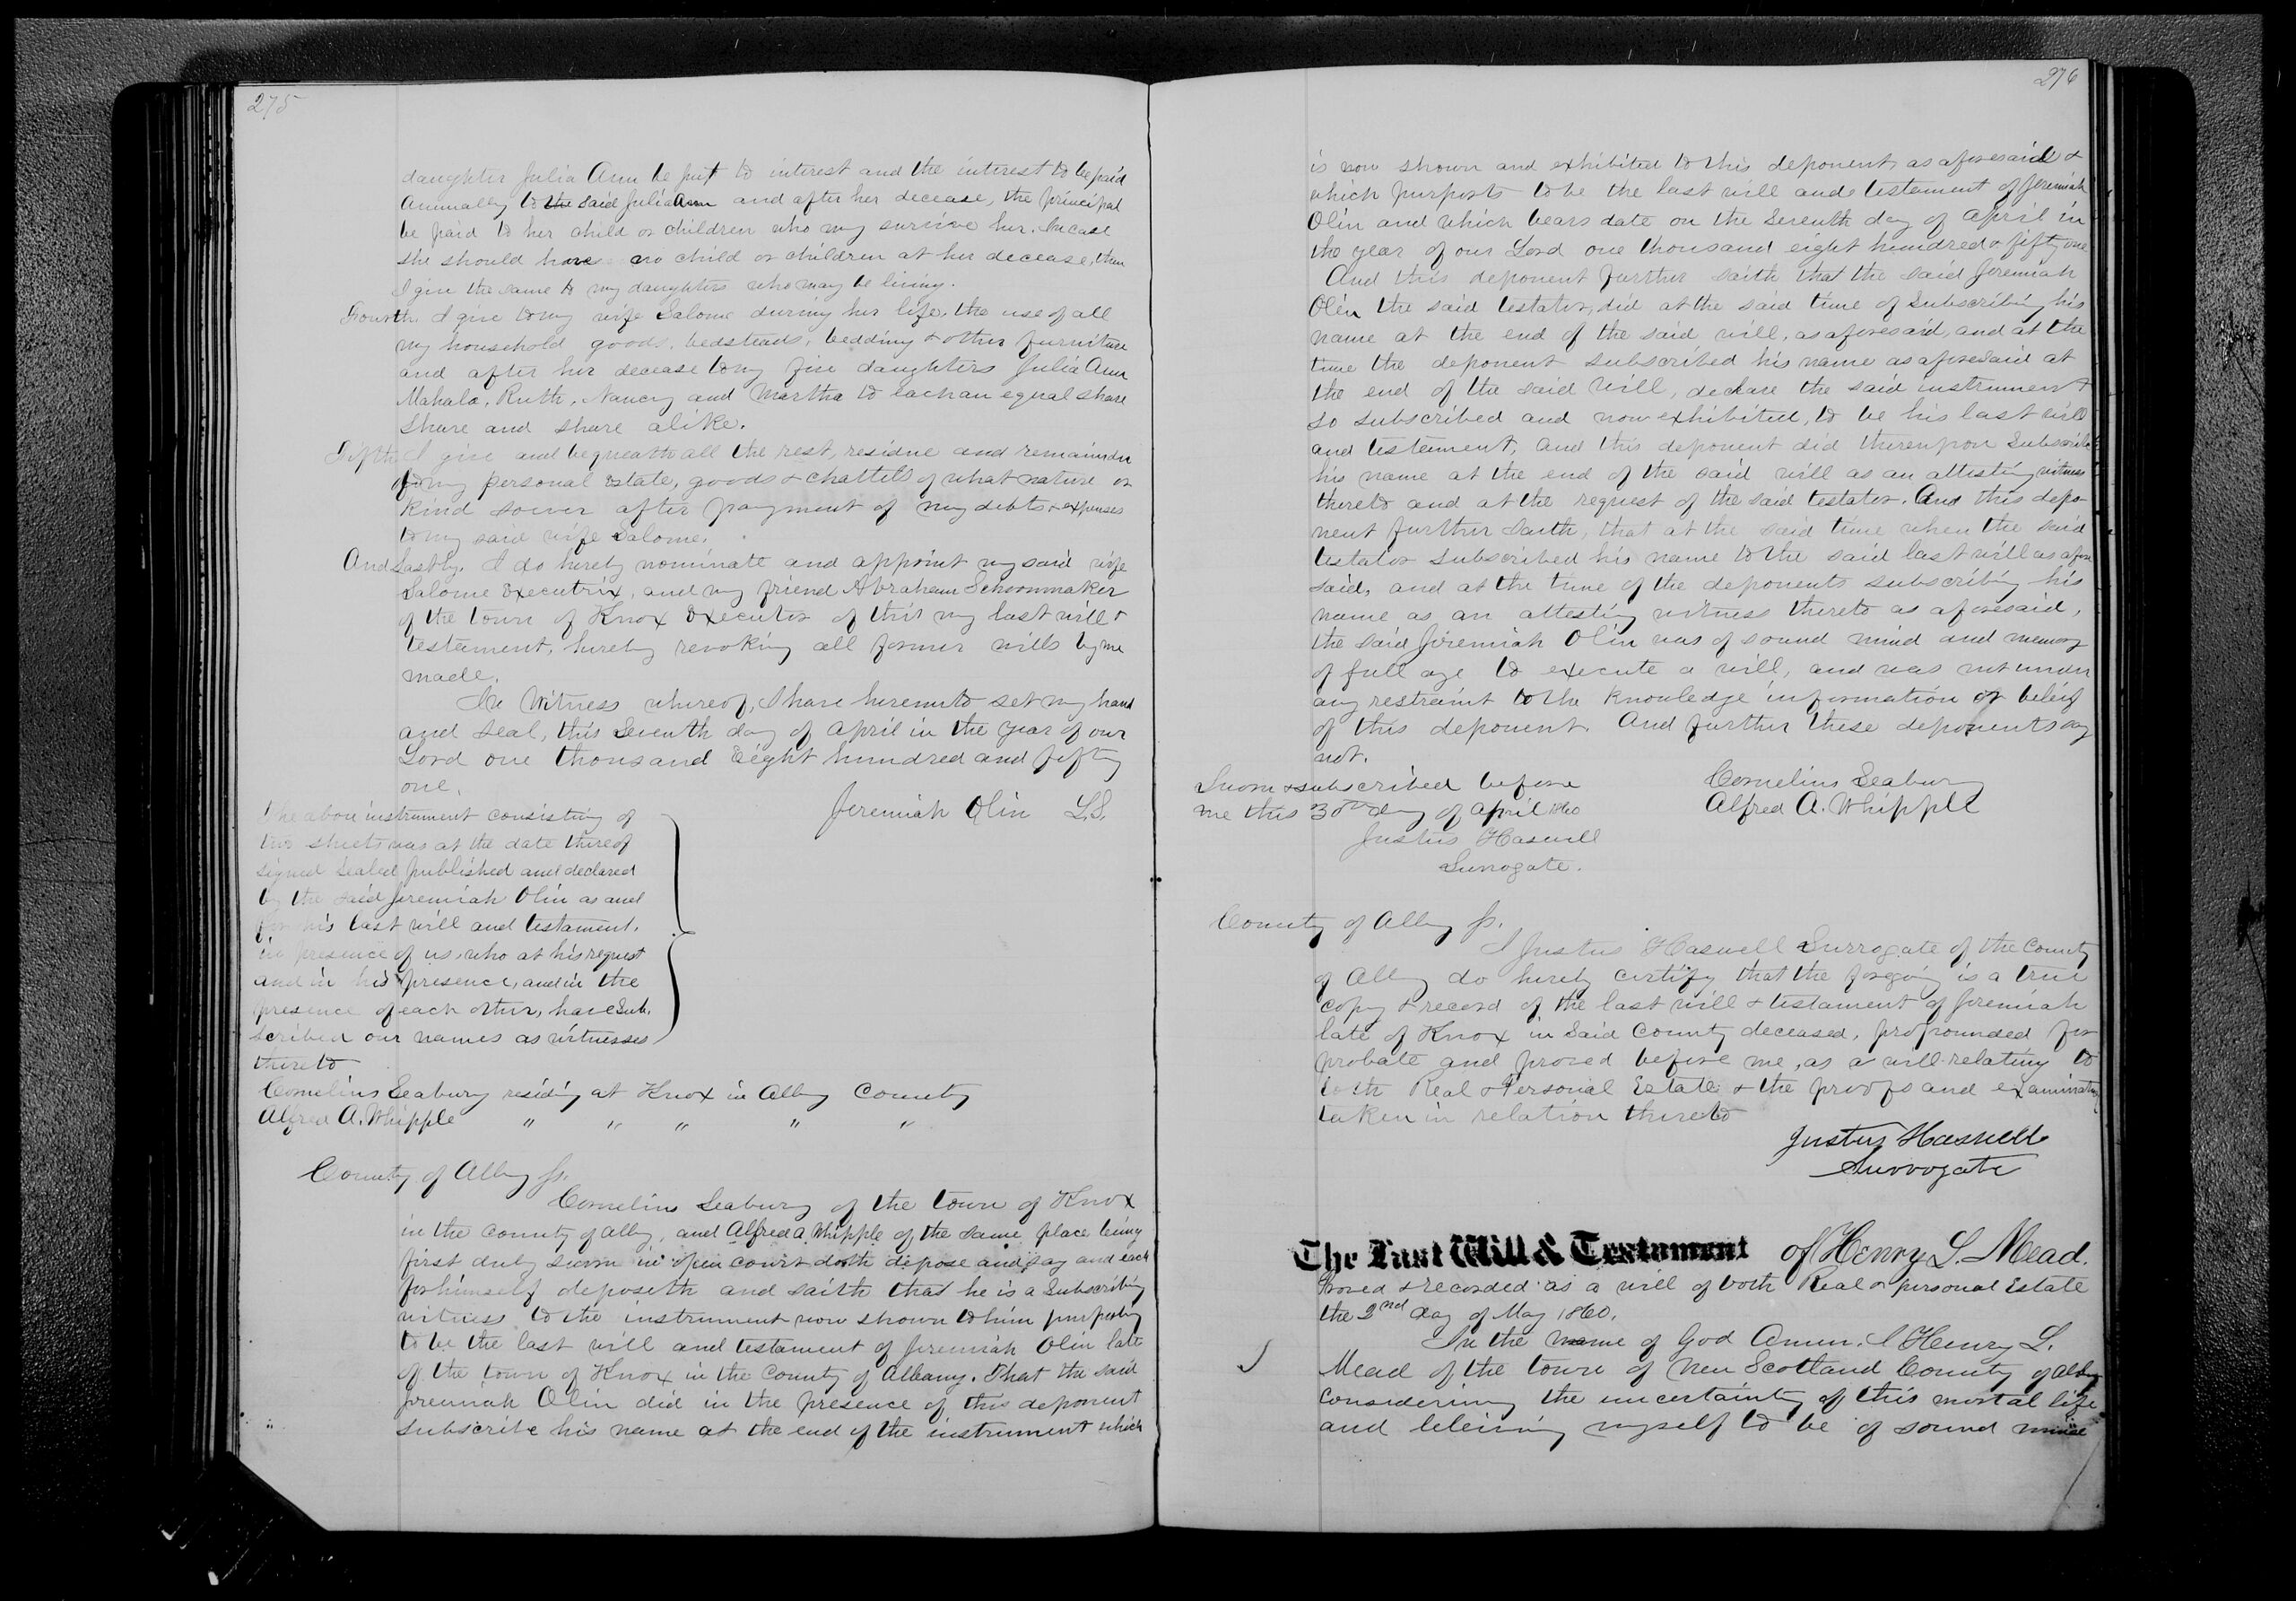 275
daughter Julia Ann be put to interest and the interest to be paid
Annually to the said Julia Ann and after her decease, the principal
be paid to her child or children who may survive her. In case
she should have no child or children at her decease, then
I give the same to my daughters who may be living.
Fourth. I give to my wife Salome during her life, the use of all
my household goods, bedsteads, bedding & other furniture
and after her decease to my five daughters Julia Ann
Mahala, Ruth, Nancy and Martha to each an equal share
share and share alike.
Fifth I give and bequeath all the rest, residue and remainder
of my personal estate, goods & chattels of what nature or
kind soever after payment of my debts & expenses
to my said wife Salome.
And Lastly. I do hereby nominate and appoint my said wife
Salome Executrix, and my friend Abraham Schoonmaker
of the town of Knox Executor of this my last will &
testament, hereby revoking all former wills by me
made.
In Witness whereof, I have hereunto set my hand
and seal, this Seventh day of April in the year of our
Lord one thousand Eight hundred and fifty
one.
Jeremiah Olin L.S.
The above instrument consisting of
two sheets was at the date thereof
signed sealed published and declared
by the said Jeremiah Olin as and
for his last will and testament,
in presence of us, who at his request
and in his presence, and in the
presence of each other, have sub.
scribed our names as witnesses
thereto
Cornelius Seabury residing at Knox in Alby County
Alfred A. Whipple " " " " "
County of Alby ss.
Cornelius Seabury of the town of Knox
in the County of Alby, and Alfred A. Whipple of the same place being
first duly sworn in open court doth depose and say and each
for himself deposeth and saith that he is a Subscribing
witness to the instrument now shown to him purporting
to be the last will and testament of Jeremiah Olin late
of the town of Knox in the County of Albany. That the said
Jeremiah Olin did in the presence of this deponent
subscribe his name at the end of the instrument which
276
is now shown and exhibited to this deponent as aforesaid &
which purports to be the last will and testament of Jeremiah
Olin and which bears date on the Seventh day of April in
the year of our Lord one thousand eight hundred & fifty one
And this deponent further saith that the said Jeremiah
Olin the said testator, did at the said time of Subscribing his
name at the end of the said will, as aforesaid, and at the
time the deponent subscribed his name as aforesaid at
the end of the said will, declare the said instrument
so subscribed and now exhibited, to be his last will
and testament, and this deponent did thereupon Subscribe
his name at the end of the said will as an attesting witness
thereto and at the request of the said testator. And this depo
nent further saith, that at the said time when the said
testator subscribed his name to the said last will as afore
said, and at the time of the deponents subscribing his
name as an attesting witness thereto as aforesaid,
the said Jeremiah Olin was of sound mind and memory
of full age to execute a will, and was not under
any restraint to the knowledge information or belief
of this deponent. And further these deponents say
not.
Sworn & subscribed before
me this 30th day of April 1860
Justus Haswell
Surrogate.
Cornelius Seabury
Alfred A. Whipple
County of Alby ss.
I Justus Haswell Surrogate of the County
of Alby do hereby certify that the foregoing is a true
copy & record of the last will & testament of Jeremiah
late of Knox in said County deceased, propounded for
probate and proved before me, as a will relating to
both Real & Personal Estate & the proofs and examination
taken in relation thereto
Justus Haswell
Surrogate
The Last Will & Testament of Henry L. Mead.
Proved & recorded as a will of both Real & personal Estate
the 2nd day of May 1860.
In the name of God Amen. I Henry L.
Mead of the town of New Scotland County of Alby
considering the uncertainty of this mortal life
and beleiving myself to be of sound mind